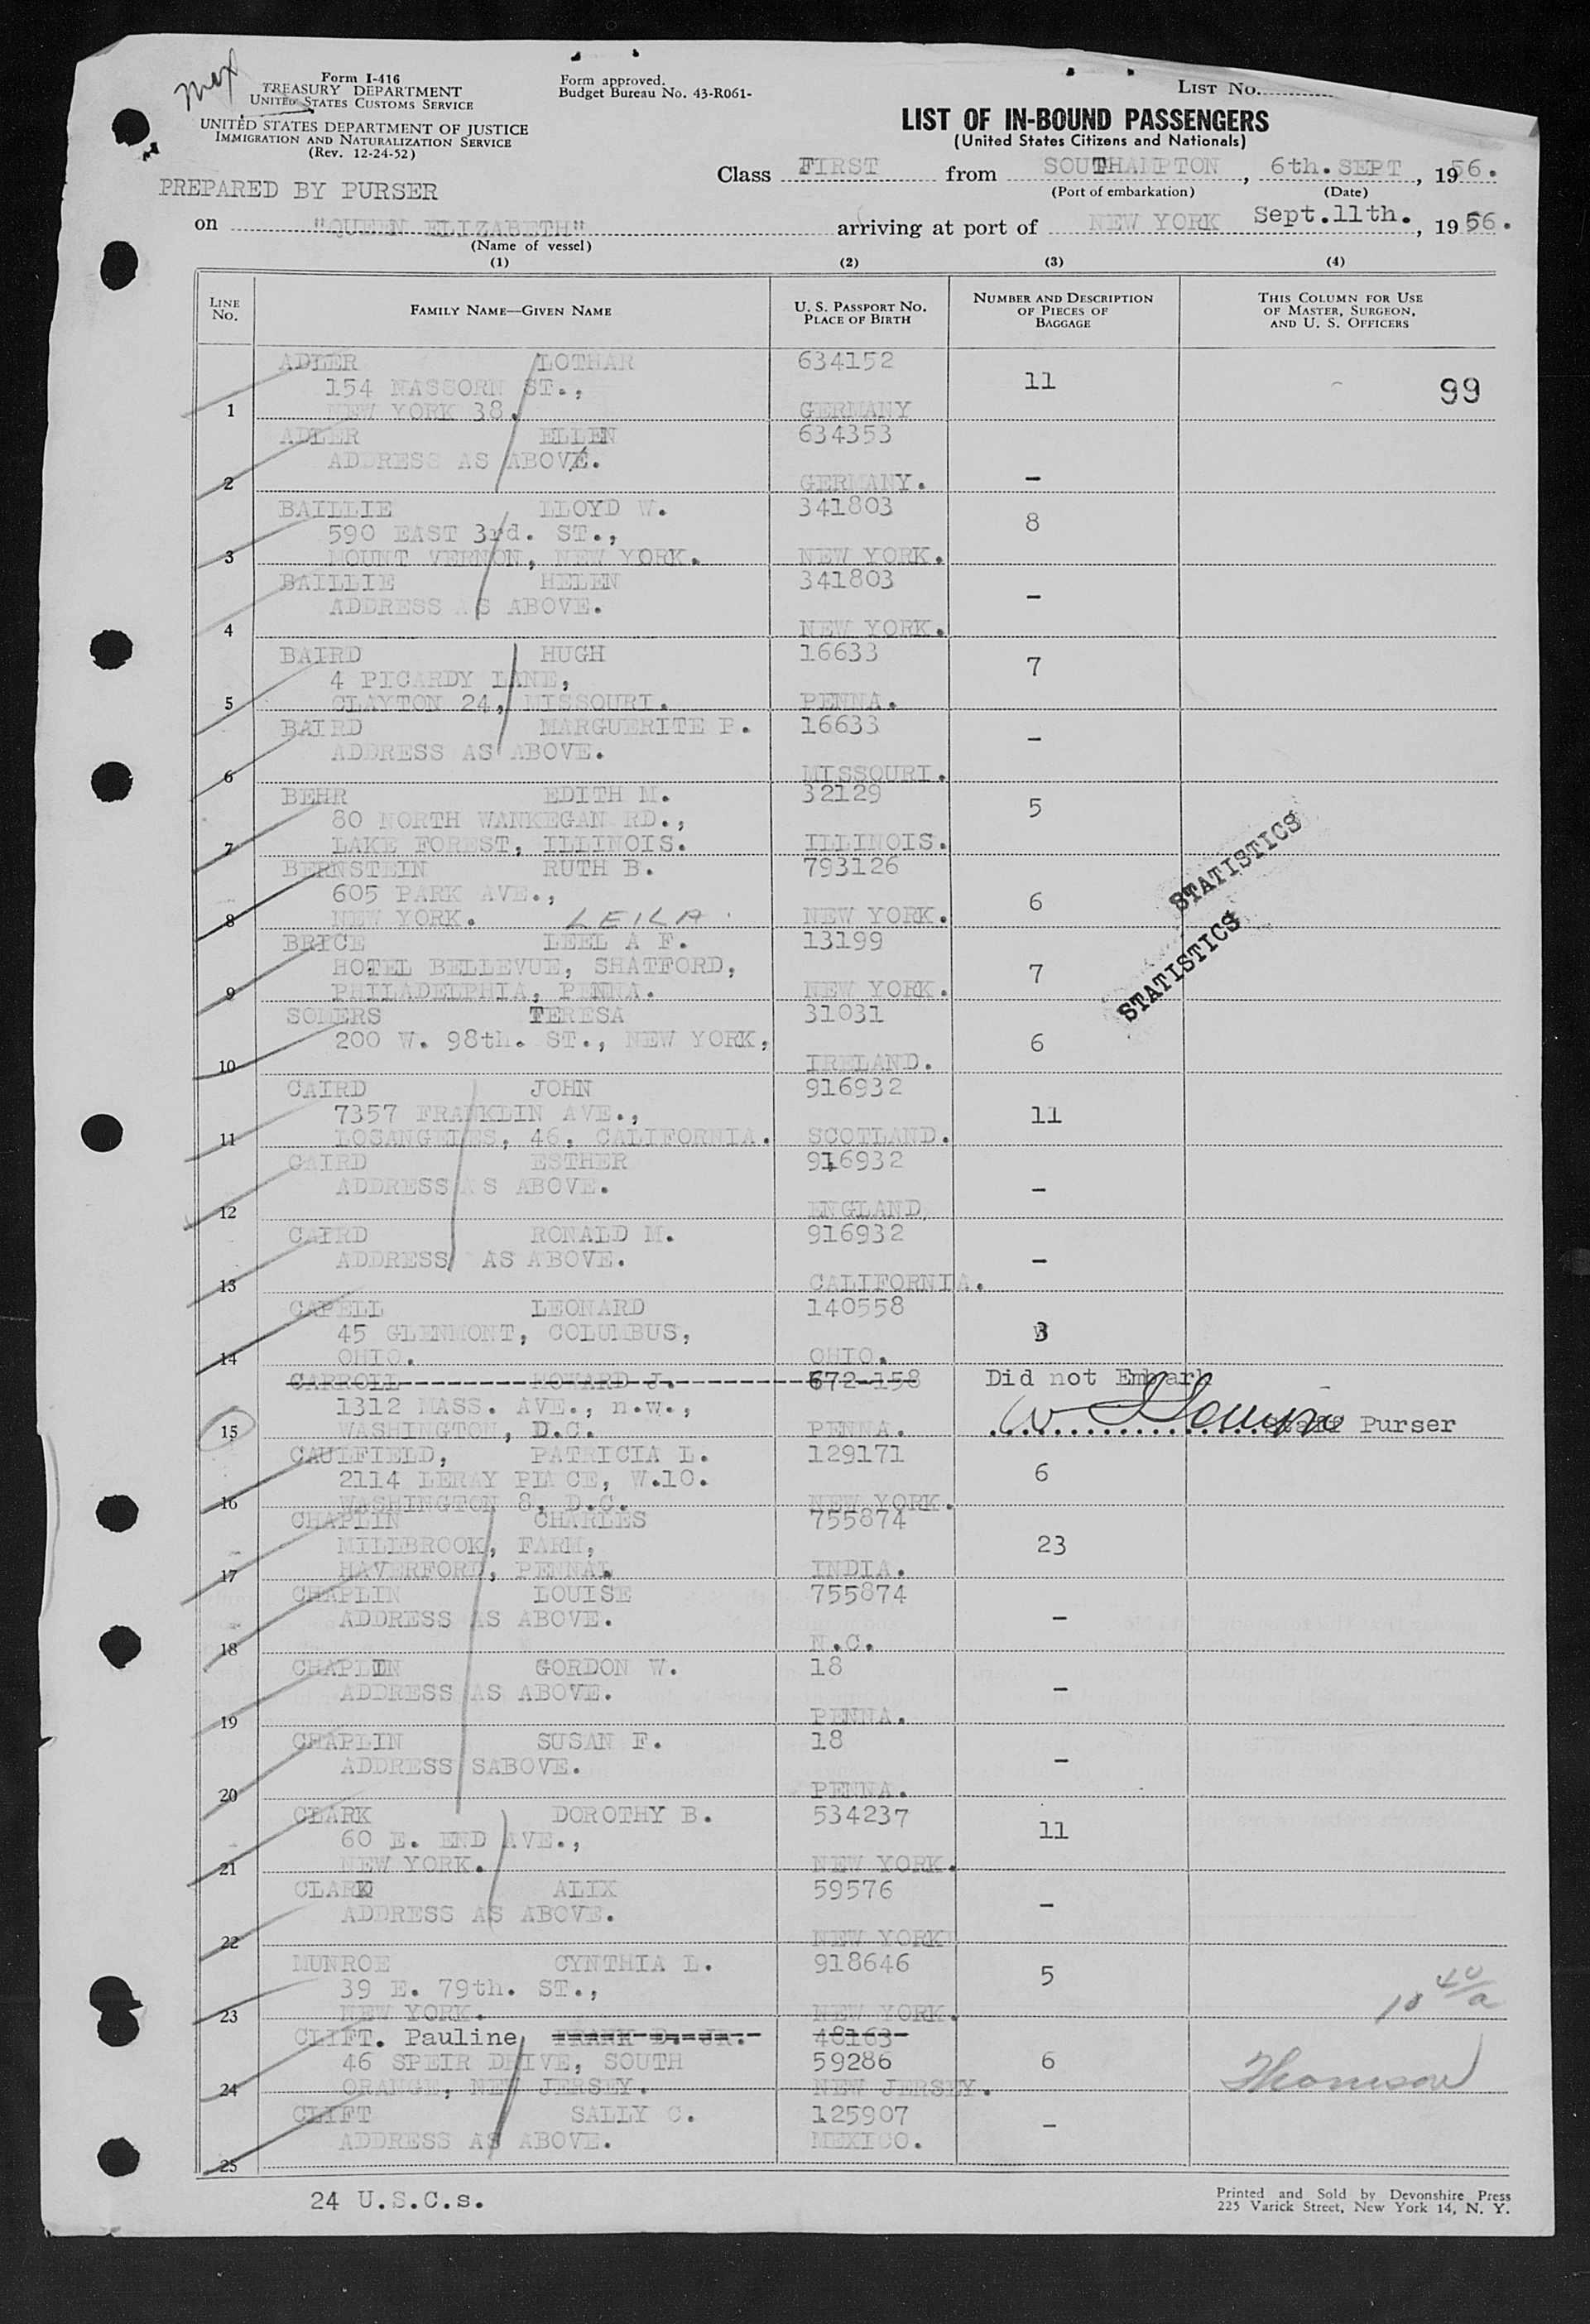 Form I-416
TREASURY DEPARTMENT
UNITED STATES CUSTOMS SERVICE
UNITED STATES DEPARTMENT OF JUSTICE
IMMIGRATION AND NATURALIZATION SERVICE
(Rev. 12-24-52)
Form approved.
Budget Bureau No. 43-R061-
LIST NO.
LIST OF IN-BOUND PASSENGERS
(United States Citizens and Nationals)
Class FIRST from SOUTHAMPTON, 6th. SEPT, 1956.
(Port of embarkation) (Date)
PREPARED BY PURSER
on "QUEEN ELIZABETH" arriving at port of NEW YORK Sept.11th., 1956.
(Name of vessel)
(1) (2) (3) (4)
LINE NO. FAMILY NAME—GIVEN NAME U. S. PASSPORT NO. PLACE OF BIRTH NUMBER AND DESCRIPTION OF PIECES OF BAGGAGE THIS COLUMN FOR USE OF MASTER, SURGEON, AND U. S. OFFICERS
ADLER LOTHAR 634152
154 NASSORN ST., 11 99
1 NEW YORK 38. GERMANY
ADLER ELLEN 634353
ADDRESS AS ABOVE.
2 GERMANY. -
BAILLIE LLOYD W. 341803
590 EAST 3rd. ST., 8
3 MOUNT VERNON, NEW YORK. NEW YORK.
BAILLIE HELEN 341803
ADDRESS AS ABOVE. -
4 NEW YORK.
BAIRD HUGH 16633
4 PICARDY LANE, 7
5 CLAYTON 24, MISSOURI. PENNA.
BAIRD MARGUERITE P. 16633
ADDRESS AS ABOVE. -
6 MISSOURI.
BEHR EDITH M. 32129
80 NORTH WANKEGAN RD., 5
7 LAKE FOREST, ILLINOIS. ILLINOIS.
BERNSTEIN RUTH B. 793126
605 PARK AVE., 6
8 NEW YORK. NEW YORK.
STATISTICS
LEILA
BRICE LEEL A F. 13199
HOTEL BELLEVUE, SHATFORD, 7
9 PHILADELPHIA, PENNA. NEW YORK.
STATISTICS
SOMERS TERESA 31031
200 W. 98th. ST., NEW YORK, 6
10 IRELAND.
CAIRD JOHN 916932
7357 FRANKLIN AVE., 11
11 LOSANGELES, 46, CALIFORNIA. SCOTLAND.
CAIRD ESTHER 916932
ADDRESS AS ABOVE. -
12 ENGLAND,
CAIRD RONALD M. 916932
ADDRESS AS ABOVE. -
13 CALIFORNIA.
CAPELL LEONARD 140558
45 GLENMONT, COLUMBUS, 3
14 OHIO. OHIO.
CARROLL HOWARD J. 672-158 Did not Embark
1312 MASS. AVE., n.w.,
15 WASHINGTON, D.C. PENNA. Staff Purser
CAULFIELD, PATRICIA L. 129171
2114 LERAY PLA CE, W.10. 6
16 WASHINGTON 8, D.C. NEW YORK.
CHAPLIN CHARLES 755874
MILLBROOK, FARM, 23
17 HAVERFORD, PENNA. INDIA.
CHAPLIN LOUISE 755874
ADDRESS AS ABOVE. -
18 N.C.
CHAPLIN GORDON W. 18
ADDRESS AS ABOVE. -
19 PENNA.
CHAPLIN SUSAN F. 18
ADDRESS SABOVE. -
20 PENNA.
CLARK DOROTHY B. 534237
60 E. END AVE., 11
21 NEW YORK. NEW YORK.
CLARK ALIX 59576
ADDRESS AS ABOVE. -
22 NEW YORK
MUNROE CYNTHIA L. 918646
39 E. 79th. ST., 5
23 NEW YORK. NEW YORK.
CLIFT. Pauline FRANK D. JR. 48163
46 SPEIR DRIVE, SOUTH 59286 6 Thomson
24 ORANGE, NEW JERSEY. NEW JERSEY.
CLIFT SALLY C. 125907
ADDRESS AS ABOVE. MEXICO. -
25
24 U.S.C.s.
Printed and Sold by Devonshire Press
225 Varick Street, New York 14, N. Y.